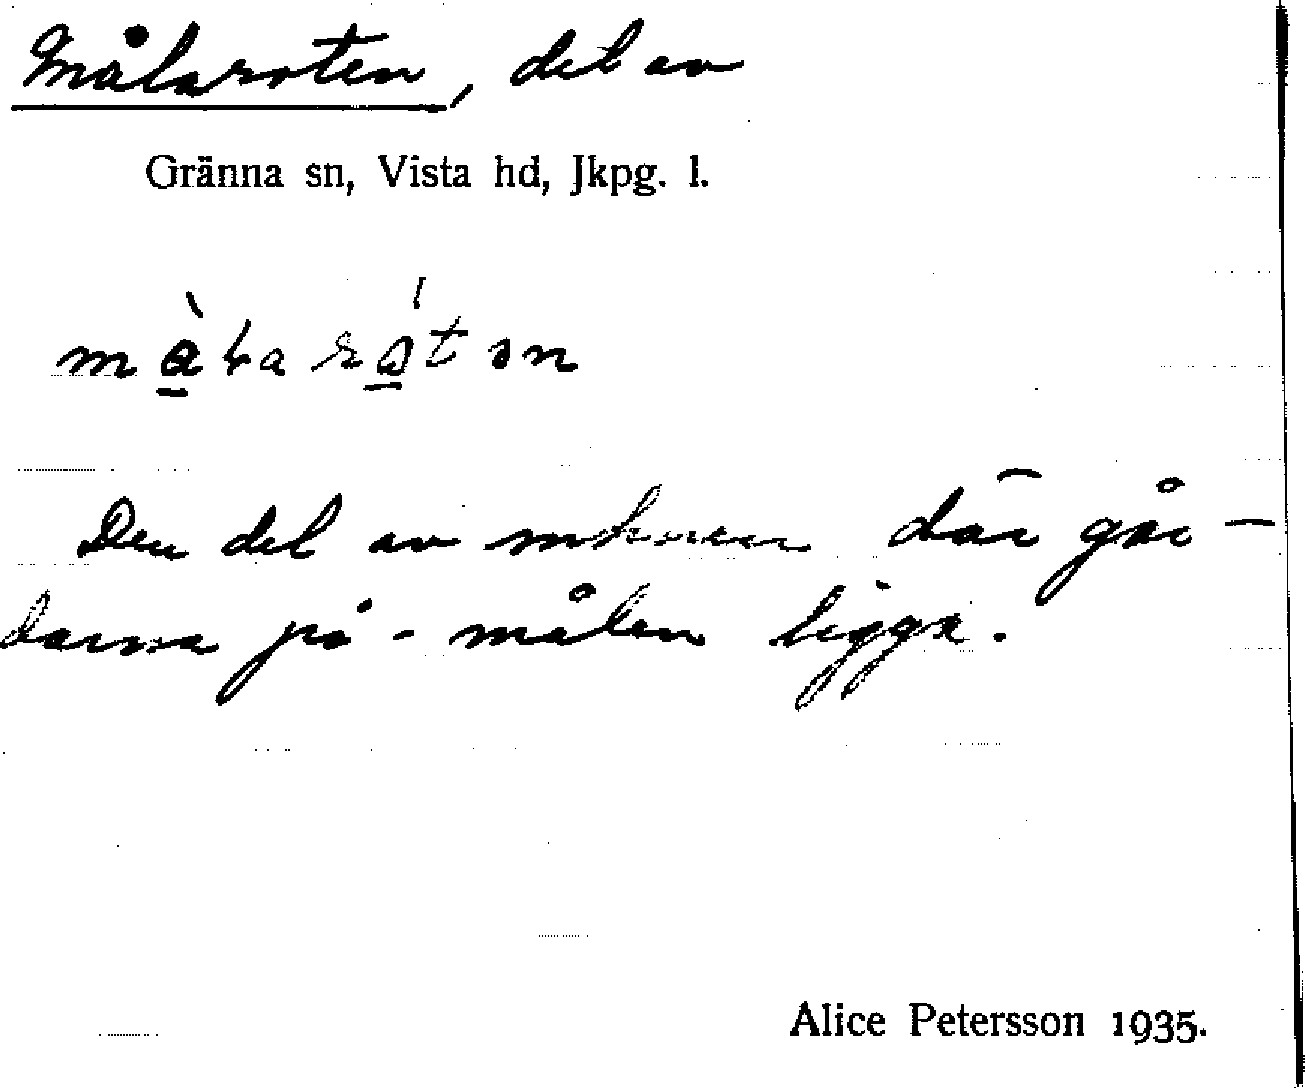 Målaroten, del av
Gränna sn, Vista hd, Jkpg. l.
Den del av socknen där går-
darna på -målen ligga.
Alice Petersson 1935.